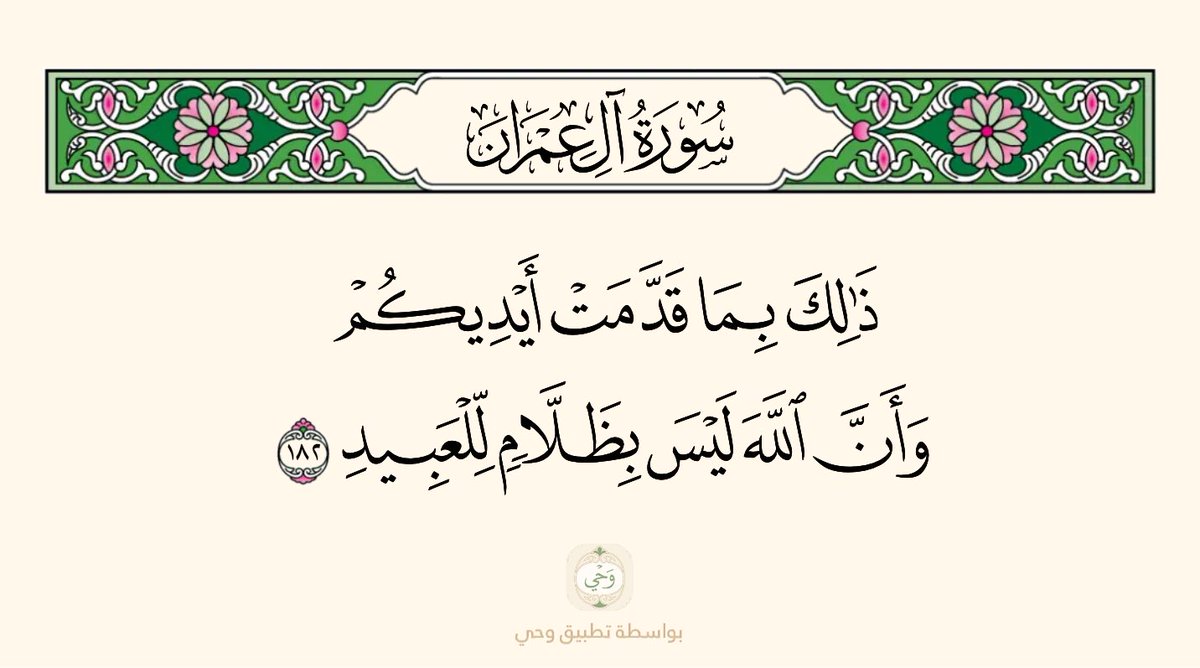 سُورَةُ آلِ عِمْرَانَ
ذَٰلِكَ بِمَا قَدَّمَتْ أَيْدِيكُمْ
وَأَنَّ ٱللَّهَ لَيْسَ بِظَلَّامٍ لِّلْعَبِيدِ ١٨٢
وَحْي
بواسطة تطبيق وحي